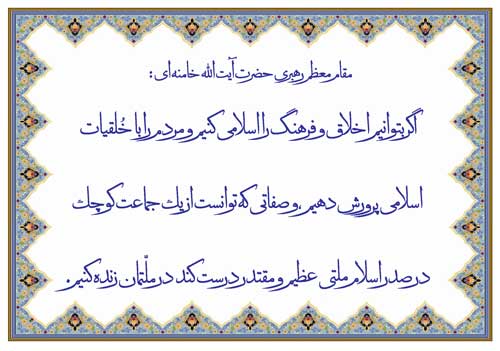 مقام معظم رهبری حضرت آیت الله خامنه ای:
اگر بتوانیم اخلاق و فرهنگ را اسلامی کنیم و مردم را با خُلقیات
اسلامی پرورش دهیم، و صفاتی که توانست از یک جماعت کوچک
در صدر اسلام ملتی عظیم و مقتدر درست کند در ملّتمان زنده کنیم.